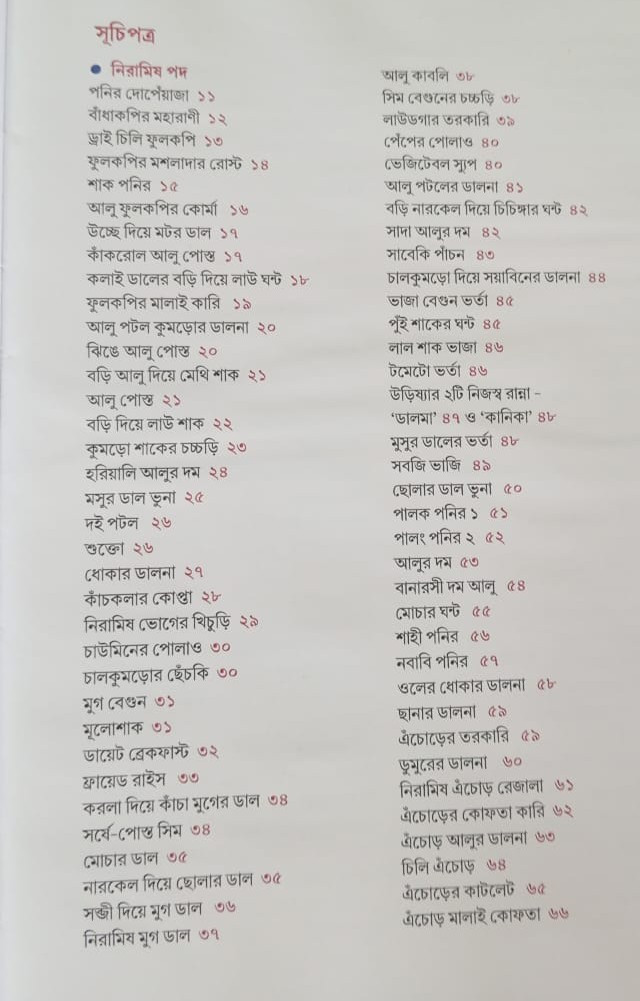 সূচিপত্র
নিরামিষ পদ
পনির দোপেঁয়াজা ১১
বাঁধাকপির মহারাণী ১২
ড্রাই চিলি ফুলকপি ১৩
ফুলকপির মশলাদার রোস্ট ১৪
শাক পনির ১৫
আলু ফুলকপির কোর্মা ১৬
উচ্ছে দিয়ে মটর ডাল ১৭
কাঁকরোল আলু পোস্ত ১৭
কলাই ডালের বড়ি দিয়ে লাউ ঘন্ট ১৮
ফুলকপির মালাই কারি ১৯
আলু পটল কুমড়োর ডালনা ২০
ঝিঙে আলু পোস্ত ২০
বড়ি আলু দিয়ে মেথি শাক ২১
আলু পোস্ত ২১
বড়ি দিয়ে লাউ শাক ২২
কুমড়ো শাকের চচ্চড়ি ২৩
হরিয়ালি আলুর দম ২৪
মসুর ডাল ভুনা ২৫
দই পটল ২৬
শুক্তো ২৬
ধোকার ডালনা ২৭
কাঁচকলার কোপ্তা ২৮
নিরামিষ ভোগের খিচুড়ি ২৯
চাউমিনের পোলাও ৩০
চালকুমড়োর ছেঁচকি ৩০
মুগ বেগুন ৩১
মূলোশাক ৩১
ডায়েট ব্রেকফাস্ট ৩২
ফ্রায়েড রাইস ৩৩
করলা দিয়ে কাঁচা মুগের ডাল ৩৪
সর্ষে-পোস্ত সিম ৩৪
মোচার ডাল ৩৫
নারকেল দিয়ে ছোলার ডাল ৩৫
সব্জী দিয়ে মুগ ডাল ৩৬
নিরামিষ মুগ ডাল ৩৭
আলু কাবলি ৩৮
সিম বেগুনের চচ্চড়ি ৩৮
লাউডগার তরকারি ৩৯
পেঁপের পোলাও ৪০
ভেজিটেবল স্যুপ ৪০
আলু পটলের ডালনা ৪১
বড়ি নারকেল দিয়ে চিচিঙ্গার ঘন্ট ৪২
সাদা আলুর দম ৪২
সাবেকি পাঁচন ৪৩
চালকুমড়ো দিয়ে সয়াবিনের ডালনা ৪৪
ভাজা বেগুন ভর্তা ৪৫
পুঁই শাকের ঘন্ট ৪৫
লাল শাক ভাজা ৪৬
টমেটো ভর্তা ৪৬
উড়িষ্যার ২টি নিজস্ব রান্না -
‘ডালমা’ ৪৭ ও ‘কানিকা’ ৪৮
মুসুর ডালের ভর্তা ৪৮
সবজি ভাজি ৪৯
ছোলার ডাল ভুনা ৫০
পালক পনির ১ ৫১
পালং পনির ২ ৫২
আলুর দম ৫৩
বানারসী দম আলু ৫৪
মোচার ঘন্ট ৫৫
শাহী পনির ৫৬
নবাবি পনির ৫৭
ওলের ধোকার ডালনা ৫৮
ছানার ডালনা ৫৯
এঁচোড়ের তরকারি ৫৯
ডুমুরের ডালনা ৬০
নিরামিষ এঁচোড় রেজালা ৬১
এঁচোড়ের কোফতা কারি ৬২
এঁচোড় আলুর ডালনা ৬৩
চিলি এঁচোড় ৬৪
এঁচোড়ের কাটলেট ৬৫
এঁচোড় মালাই কোফতা ৬৬